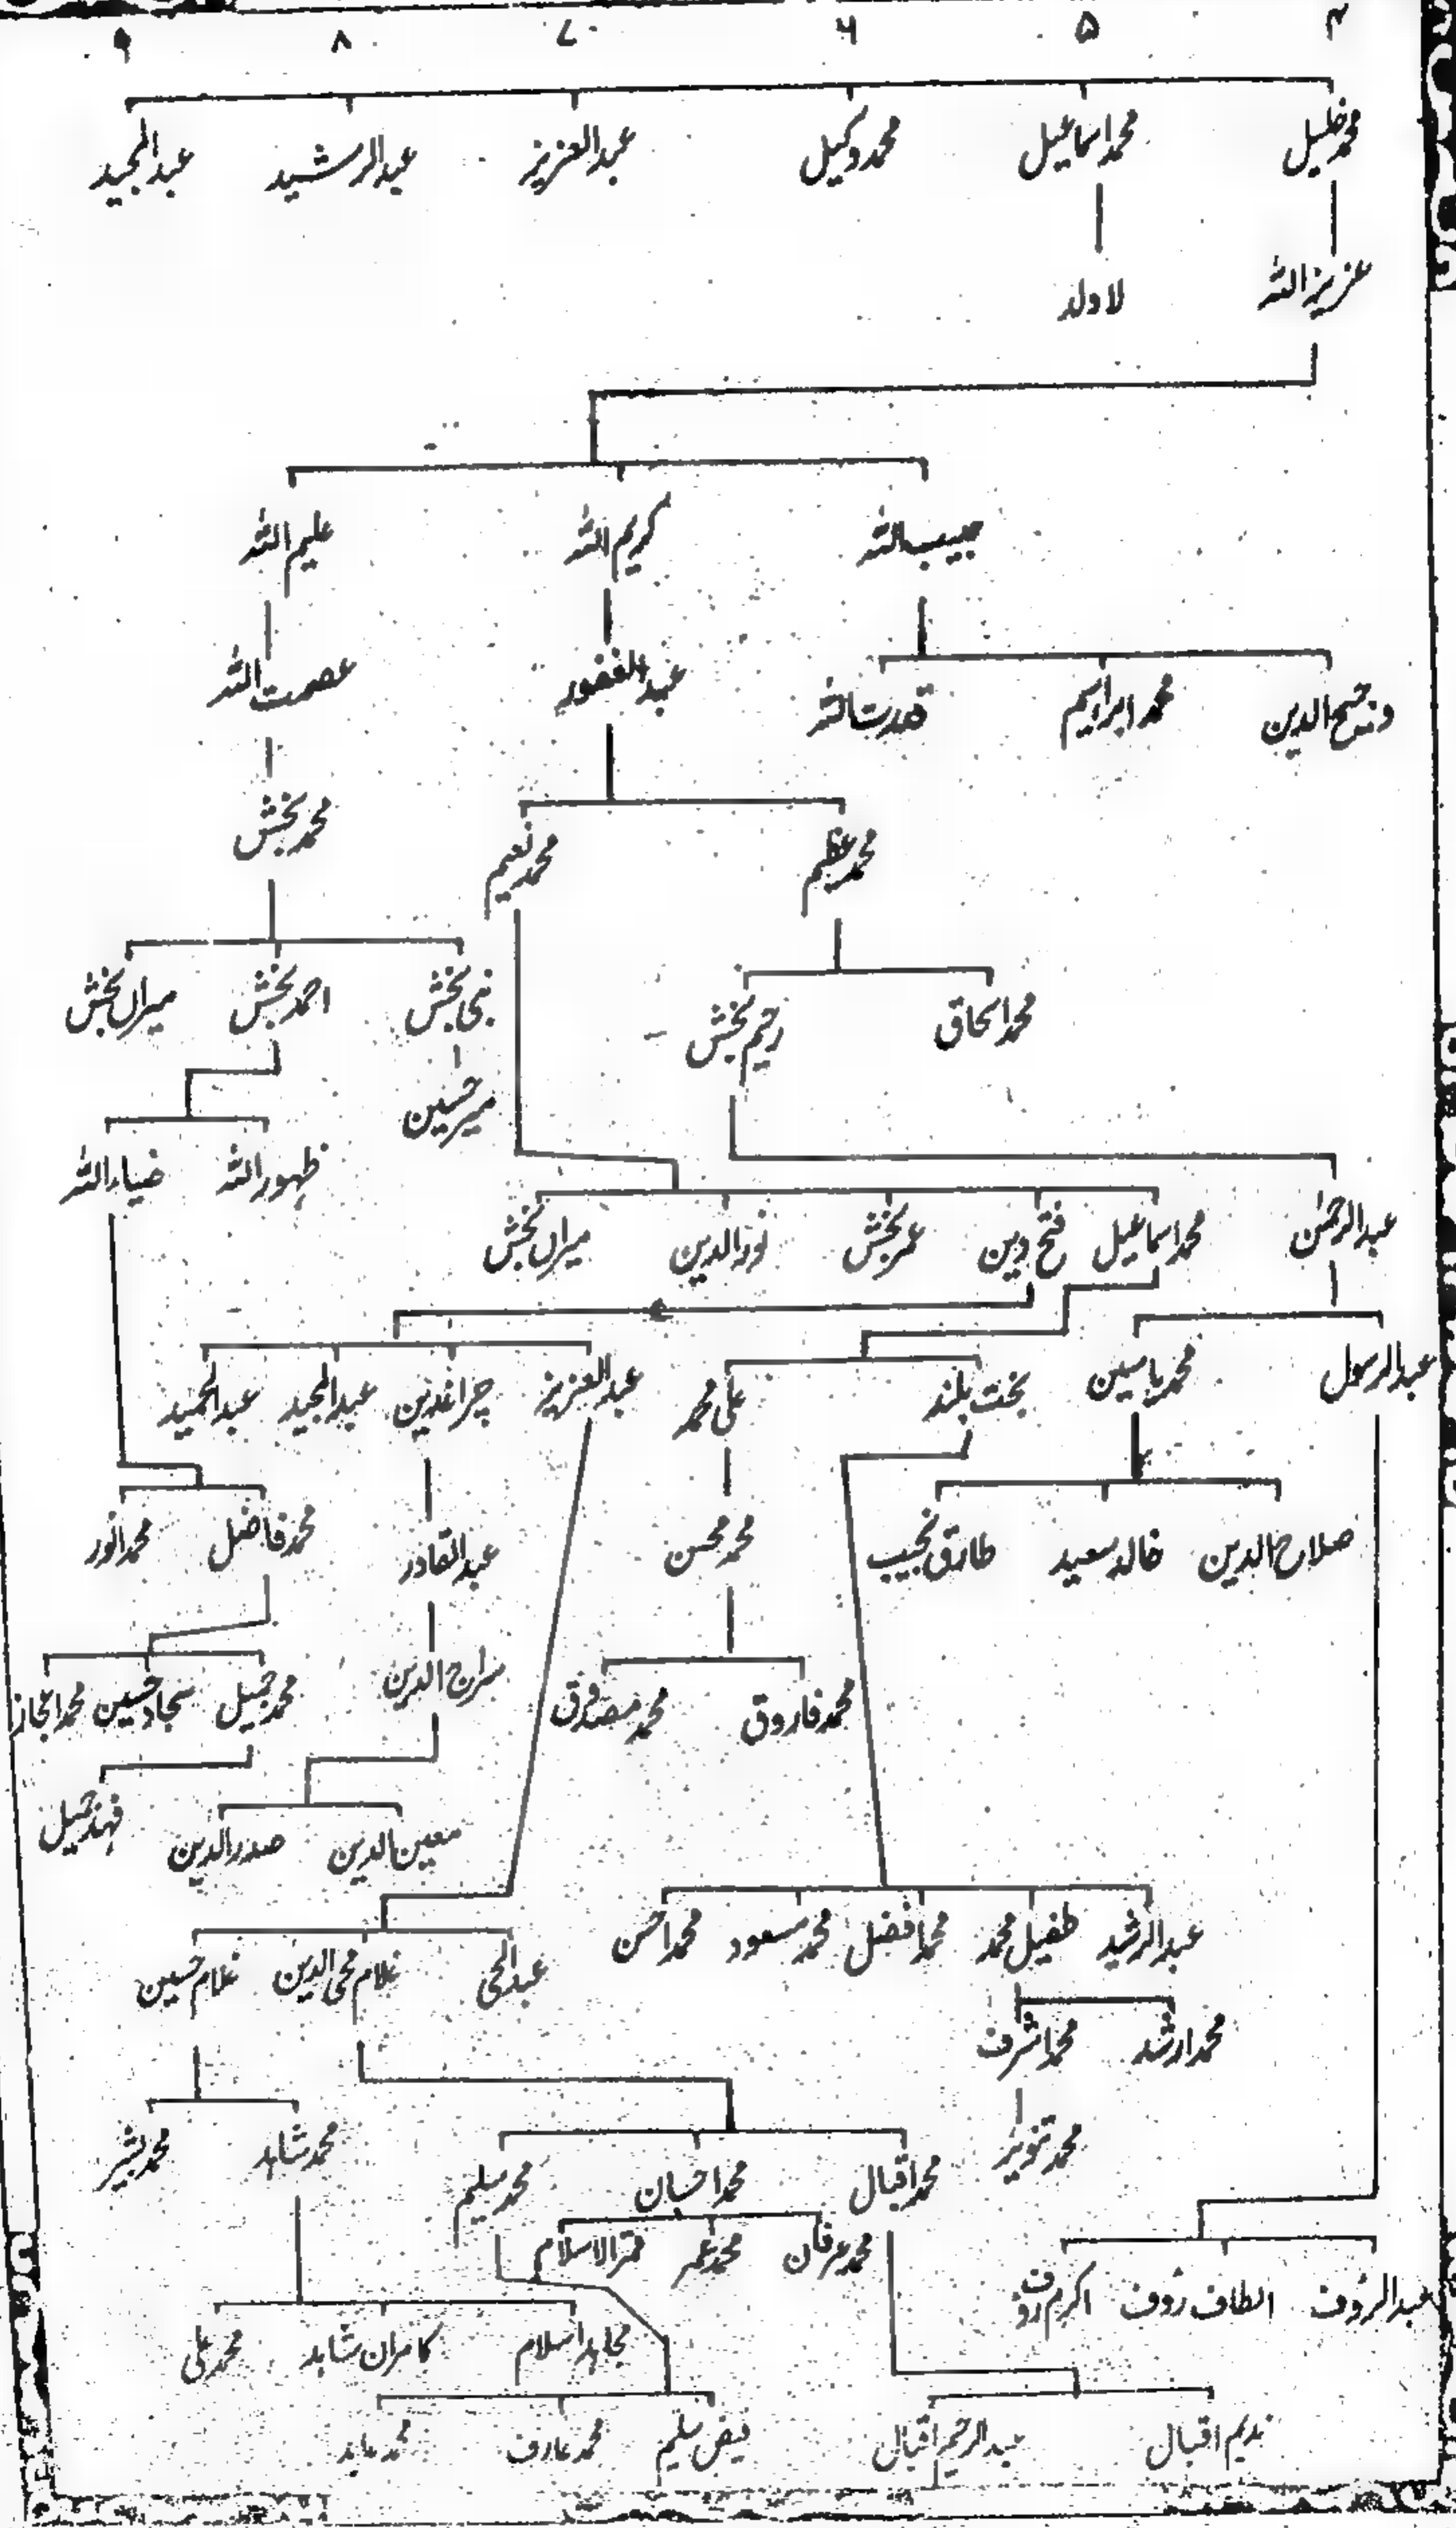 ۴ ۵ ۶ ۷ ۸ ۹
محمد خلیل محمد اسماعیل محمد وکیل عبدالعزیز عبدالرشید عبدالمجید
عزیز اللہ لا ولد
حبیب اللہ کریم اللہ علیم اللہ
فتح الدین محمد ابراہیم قدرت اللہ عبدالغفور عصمت اللہ
محمد عظیم محمد نعیم محمد بخش
محمد اسحاق رحیم بخش نبی بخش احمد بخش میراں بخش
میر حسین
ظہور اللہ ضیاء اللہ
عبدالرحمٰن محمد اسماعیل فتح دین عمر بخش نور الدین میراں بخش
عبدالرسول محمد یاسین بخت بلند علی محمد عبدالعزیز چراغدین عبدالمجید عبدالحمید
صلاح الدین خالد سعید طارق نجیب محمد محسن عبدالقادر محمد فاضل محمد انور
محمد فاروق محمد مصدوق سراج الدین محمد جمیل سجاد حسین محمد اعجاز
معین الدین صدر الدین فہد جمیل
عبدالرشید طفیل محمد محمد افضل محمد مسعود محمد احسن
عبدالحی غلام محی الدین غلام حسین
محمد ارشد محمد اشرف
محمد تنویر
محمد اقبال محمد احسان محمد سلیم محمد شاہد محمد بشیر
محمد عرفان محمد عمر قمر الاسلام
عبدالرؤف الطاف رؤف اکرم رؤف
مجاہد اسلام کامران شاہد محمد علی
ندیم اقبال عبدالرحیم اقبال فیض سلیم محمد عارف محمد عابد